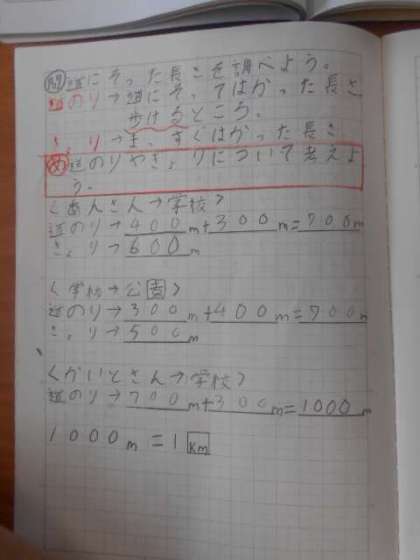 問 道にそった長さを調べよう。
道のり→道にそってはかった長さ
歩けるところ。
きょり→まっすぐはかった長さ
め 道のりやきょりについて考えよ
う。
〈あんさん→学校〉
道のり→400m+300m=700m
きょり→600m
〈学校→公園〉
道のり→300m+400m=700m
きょり→500m
〈かいとさん→学校〉
道のり→700m+300m=1000m
1000m=1km